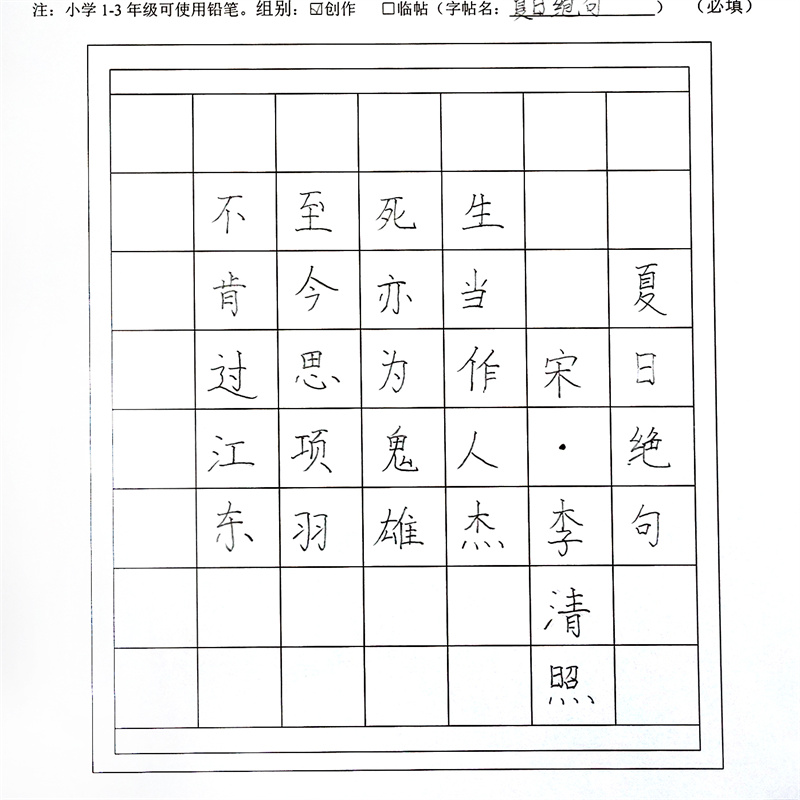 注：小学 1-3 年级可使用铅笔。组别：☑创作 ☐临帖（字帖名：夏日绝句）（必填）
夏日绝句
宋·李清照
生当作人杰
死亦为鬼雄
至今思项羽
不肯过江东